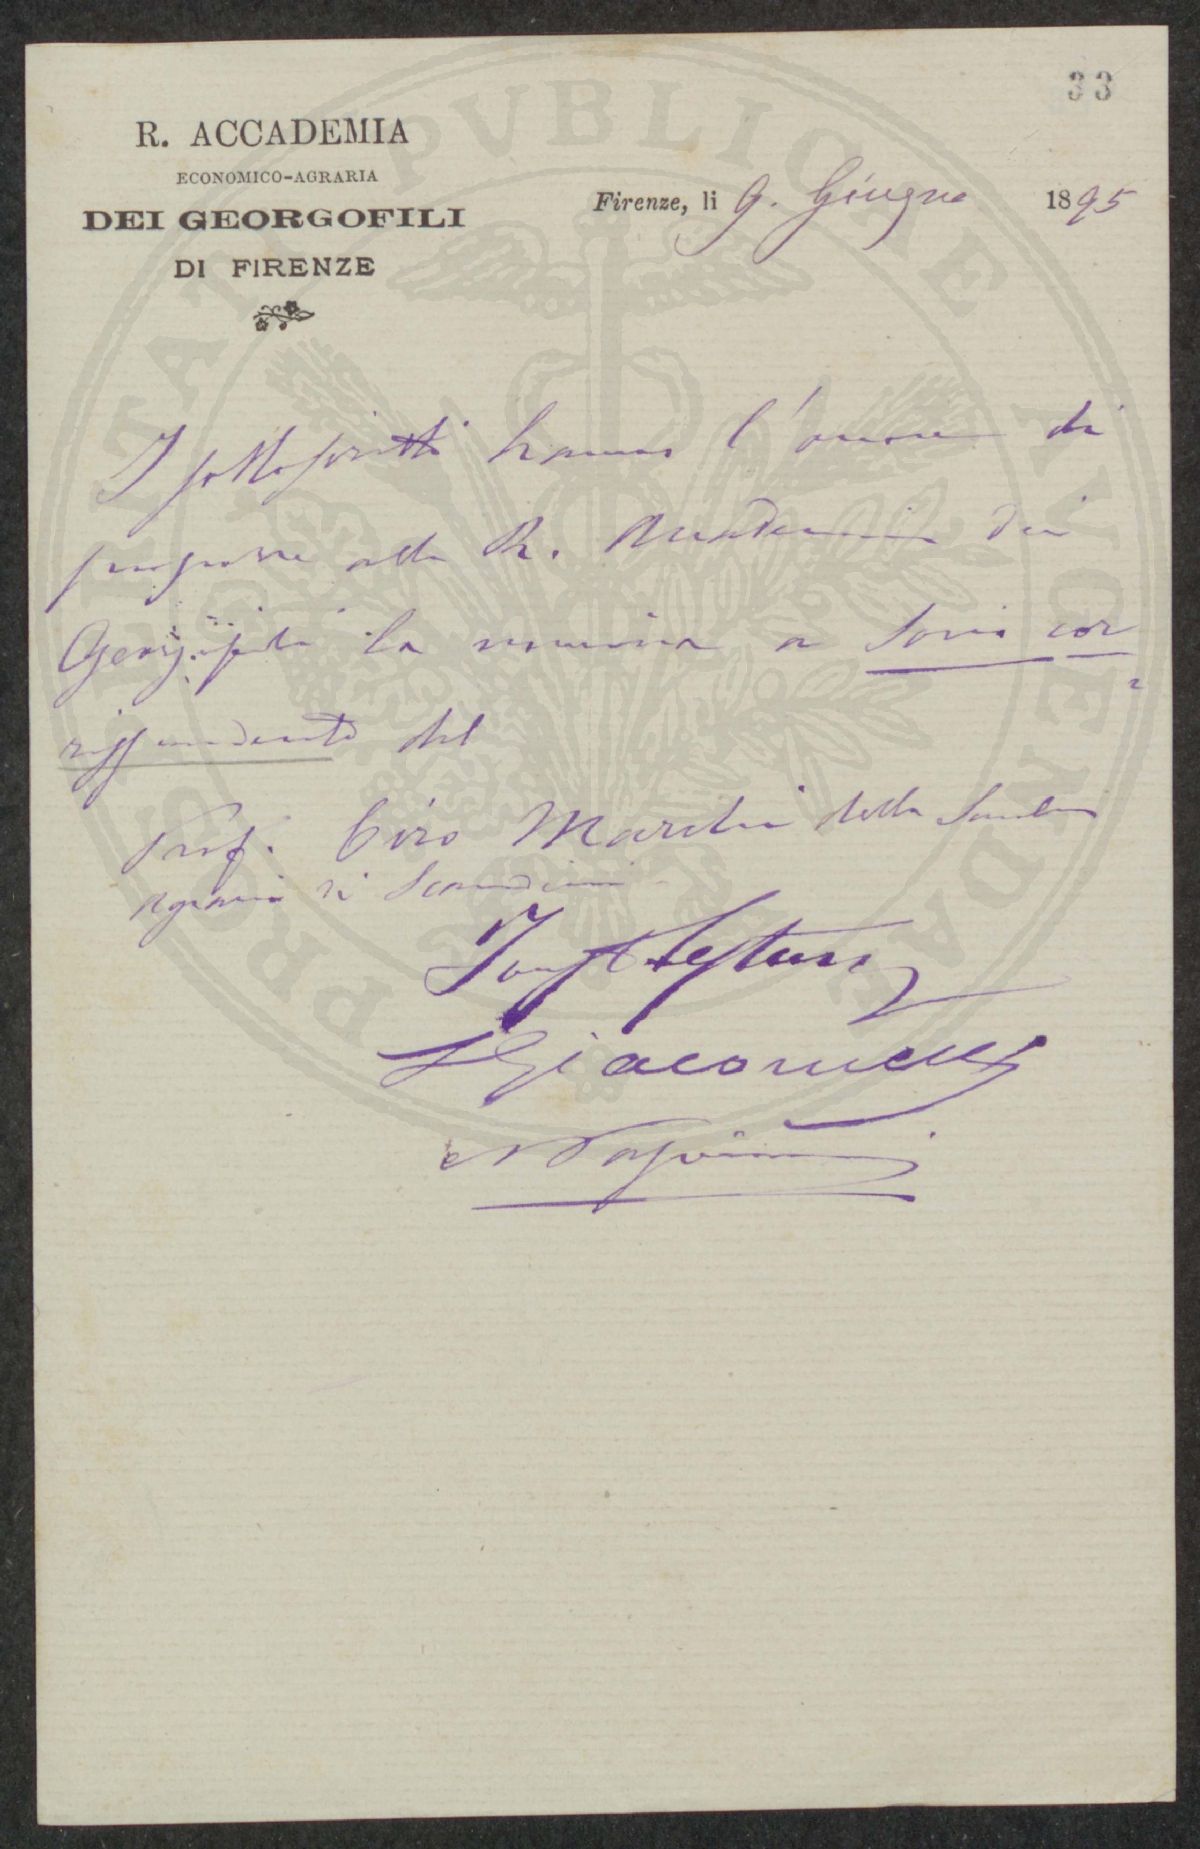 33
R. ACCADEMIA
ECONOMICO-AGRARIA
DEI GEORGOFILI
DI FIRENZE
Firenze, li 9. Giugno 1895
I sottoscritti hanno l'onore di
proporre alla R. Accademia dei
Georgofili la nomina a Socio cor
rispondente del
Prof. Ciro Marchi della Scuola
Agraria di Scandicci
Giacomelli
PROSPERITATI PVBLICAE AVGENDAE